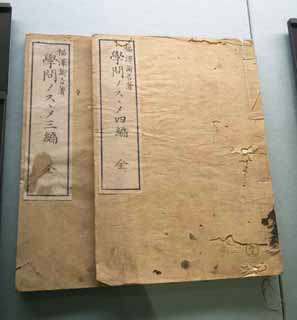 福澤諭吉著
學問ノスヽメ三編 全
福澤諭吉著
學問ノスヽメ四編 全